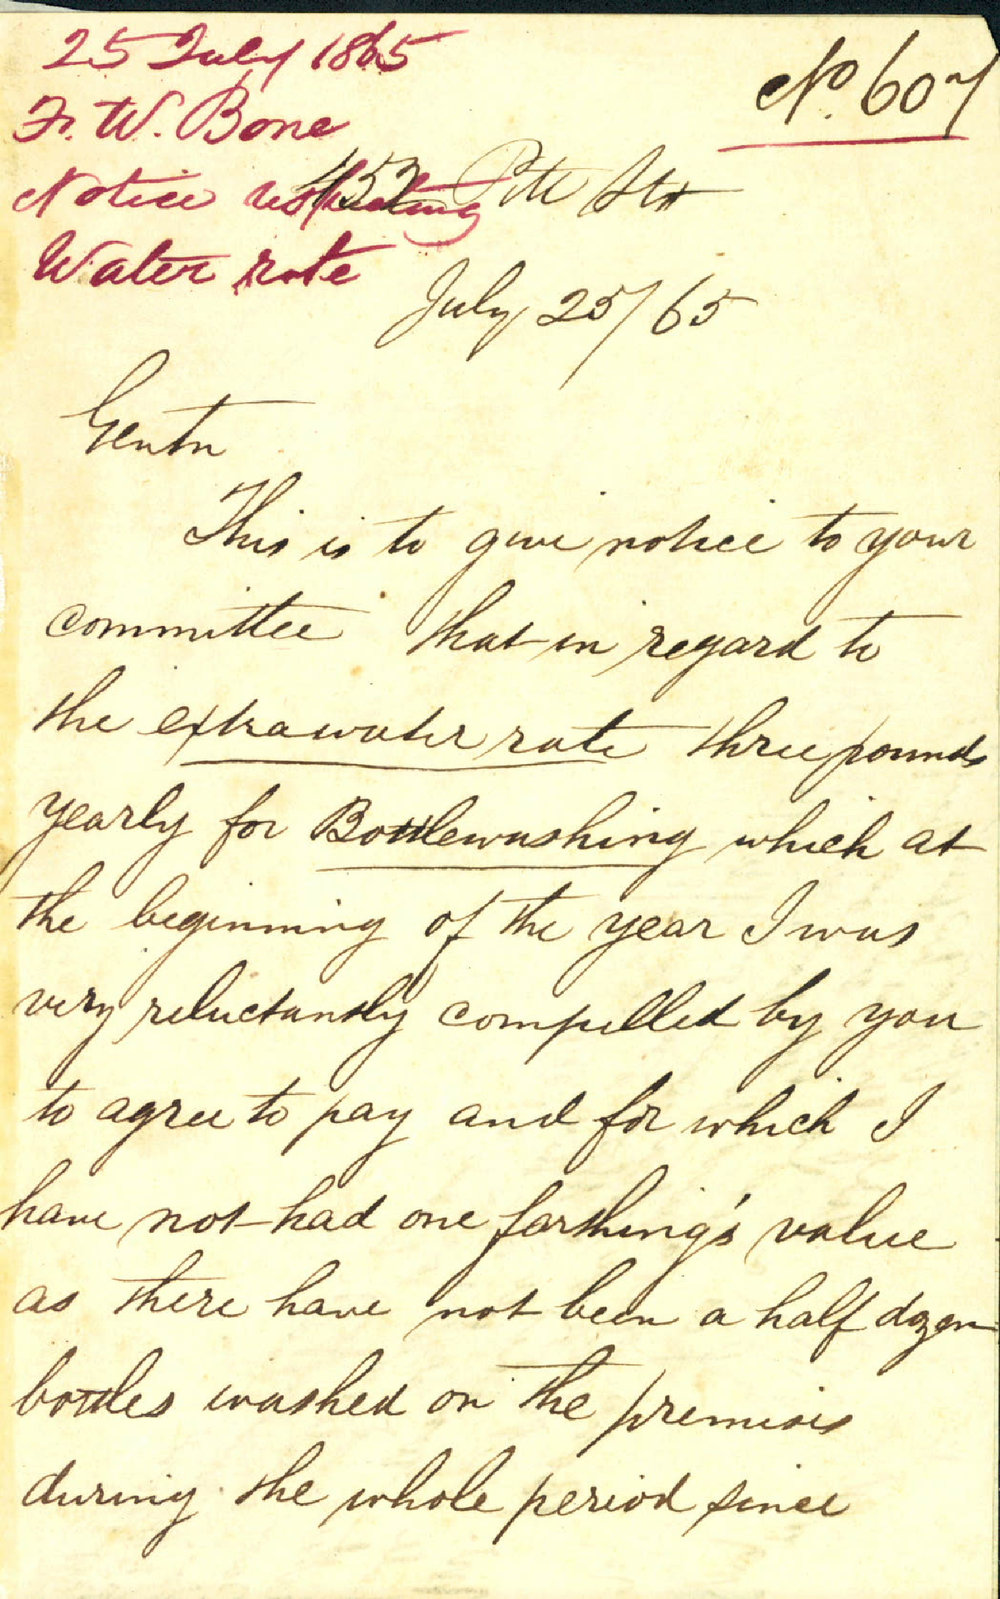 25 July 1865
No. 607
Fr. W. Bone
Notice respecting
452 Pitt St
Water rate
July 25/65
Gentn
This is to give notice to your
committee that in regard to
the extra water rate three pounds
yearly for Bottlewashing which at
the beginning of the year I was
very reluctantly compelled by you
to agree to pay and for which I
have not had one farthing's value
as there have not been a half dozen
bottles washed on the premises
during the whole period since